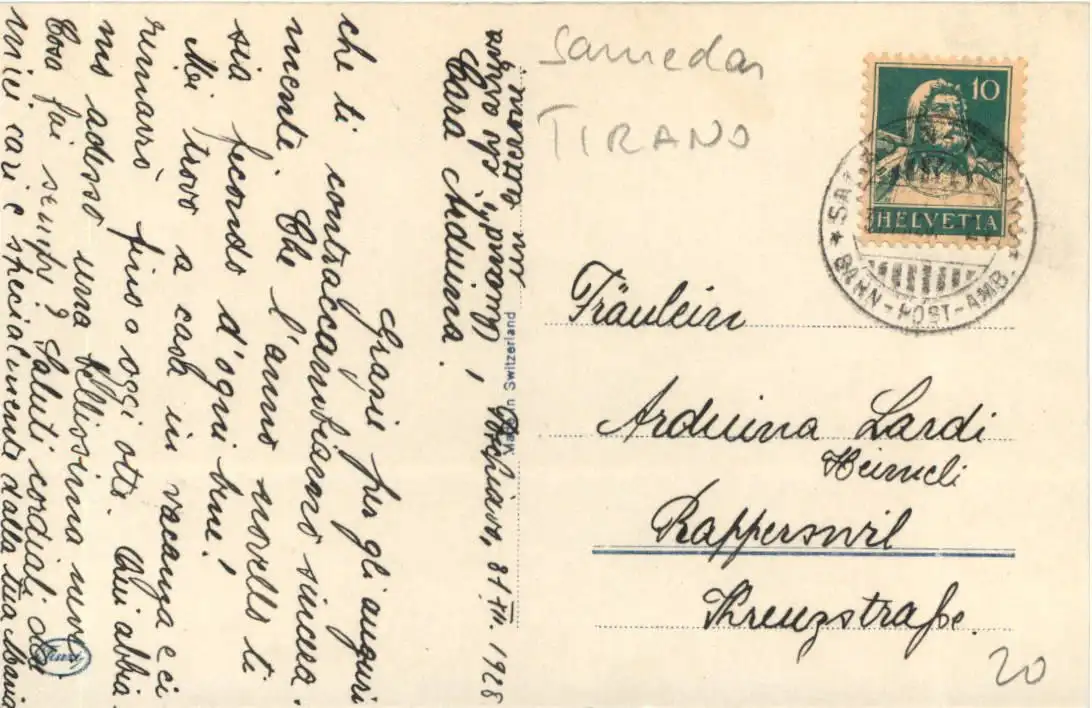 Samedan
TIRANO
10
HELVETIA
BAHN-POST-AMB.
Fräulein
Arduina Lardi
Heimeli
Rapperswil
Kreuzstraße.
20
Made in Switzerland
Poschiavo, 31 XII. 1928
Cara Arduina!
"Quand' ch'arriva
un letterone?
Grazie per gli auguri
che ti contraccambiamo sincera-
mente. Che l'anno novello ti
sia fecondo d'ogni bene!
Mi trovo a casa in vacanza e ci
remarrò fino a oggi otto. Qui abbia-
mo adesso una bellissima neve.
Cosa fai sempre? Saluti cordiali dai
miei cari e specialmente dalla tua Maria